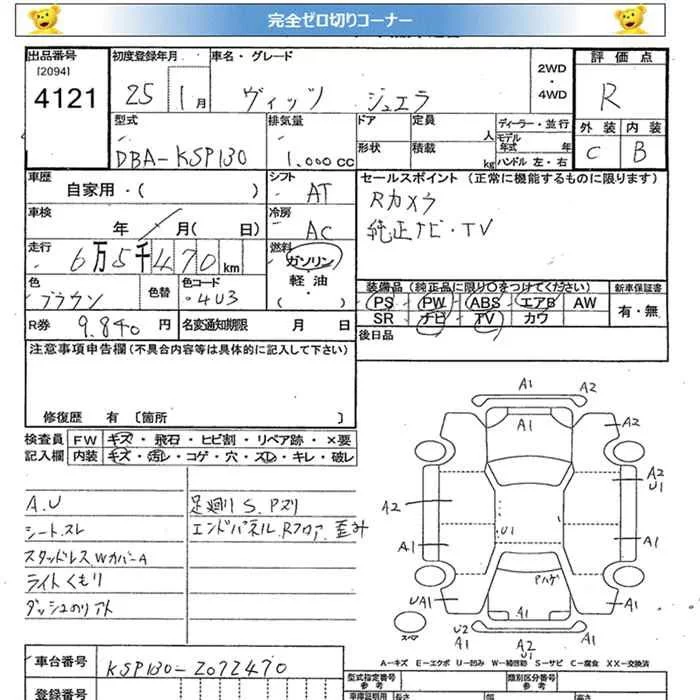 完全ゼロ切りコーナー
出品番号 初度登録年月 車名・グレード 評価点
[2094]
4121 25 1月 ヴィッツ ジュエラ 2WD・4WD R
型式 排気量 ドア 定員 人 ディーラー・並行 外装 内装
DBA-KSP130 1.000cc 形状 積載 kg モデル年式 年 ハンドル 左・右 C B
車歴 自家用・( ) シフト AT セールスポイント (正常に機能するものに限ります)
車検 年 月( 日) 冷房 AC Rカメラ
純正ナビ・TV
走行 6万5千470km 燃料 ガソリン 軽油 ・ ( )
色 ブラウン 色替 色コード 4U3 装備品 (純正品に限り○をつけてください) 新車保証書
PS PW ABS エアB AW 有・無
SR ナビ TV カワ
R券 9.840円 名変通知期限 月 日 後日品
注意事項申告欄(不具合内容等は具体的に記入して下さい)
修復歴 有 〔箇所 〕
検査員 FW キズ・飛石・ヒビ割・リペア跡・×要
記入欄 内装 キズ・汚レ・コゲ・穴・スレ・キレ・破レ
A.U 足廻り S.Pズリ
シートスレ エンドパネル.Rフロア.歪み
スタッドレス WカバーA
ライトくもり
ダッシュのリアト
A1 A2
A1 A2
A2 A2 U1
A1 U1 A1
Pハゲ
UA1 A1 A1
スペア U2 A1 U1
A-キズ E-エクボ U-凹み W-補修跡 S-サビ C-腐食 XX-交換済
車台番号 KSP130-2072470
登録番号 型式指定番号 参考 類別区分番号 参考
車庫証明用 長さ 幅 高さ